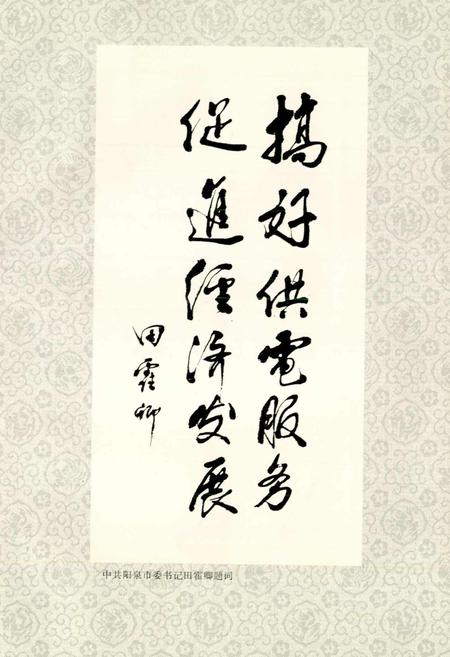 搞好供電服务
促進經济发展
田霍卿
中共阳泉市委书记田霍卿题词